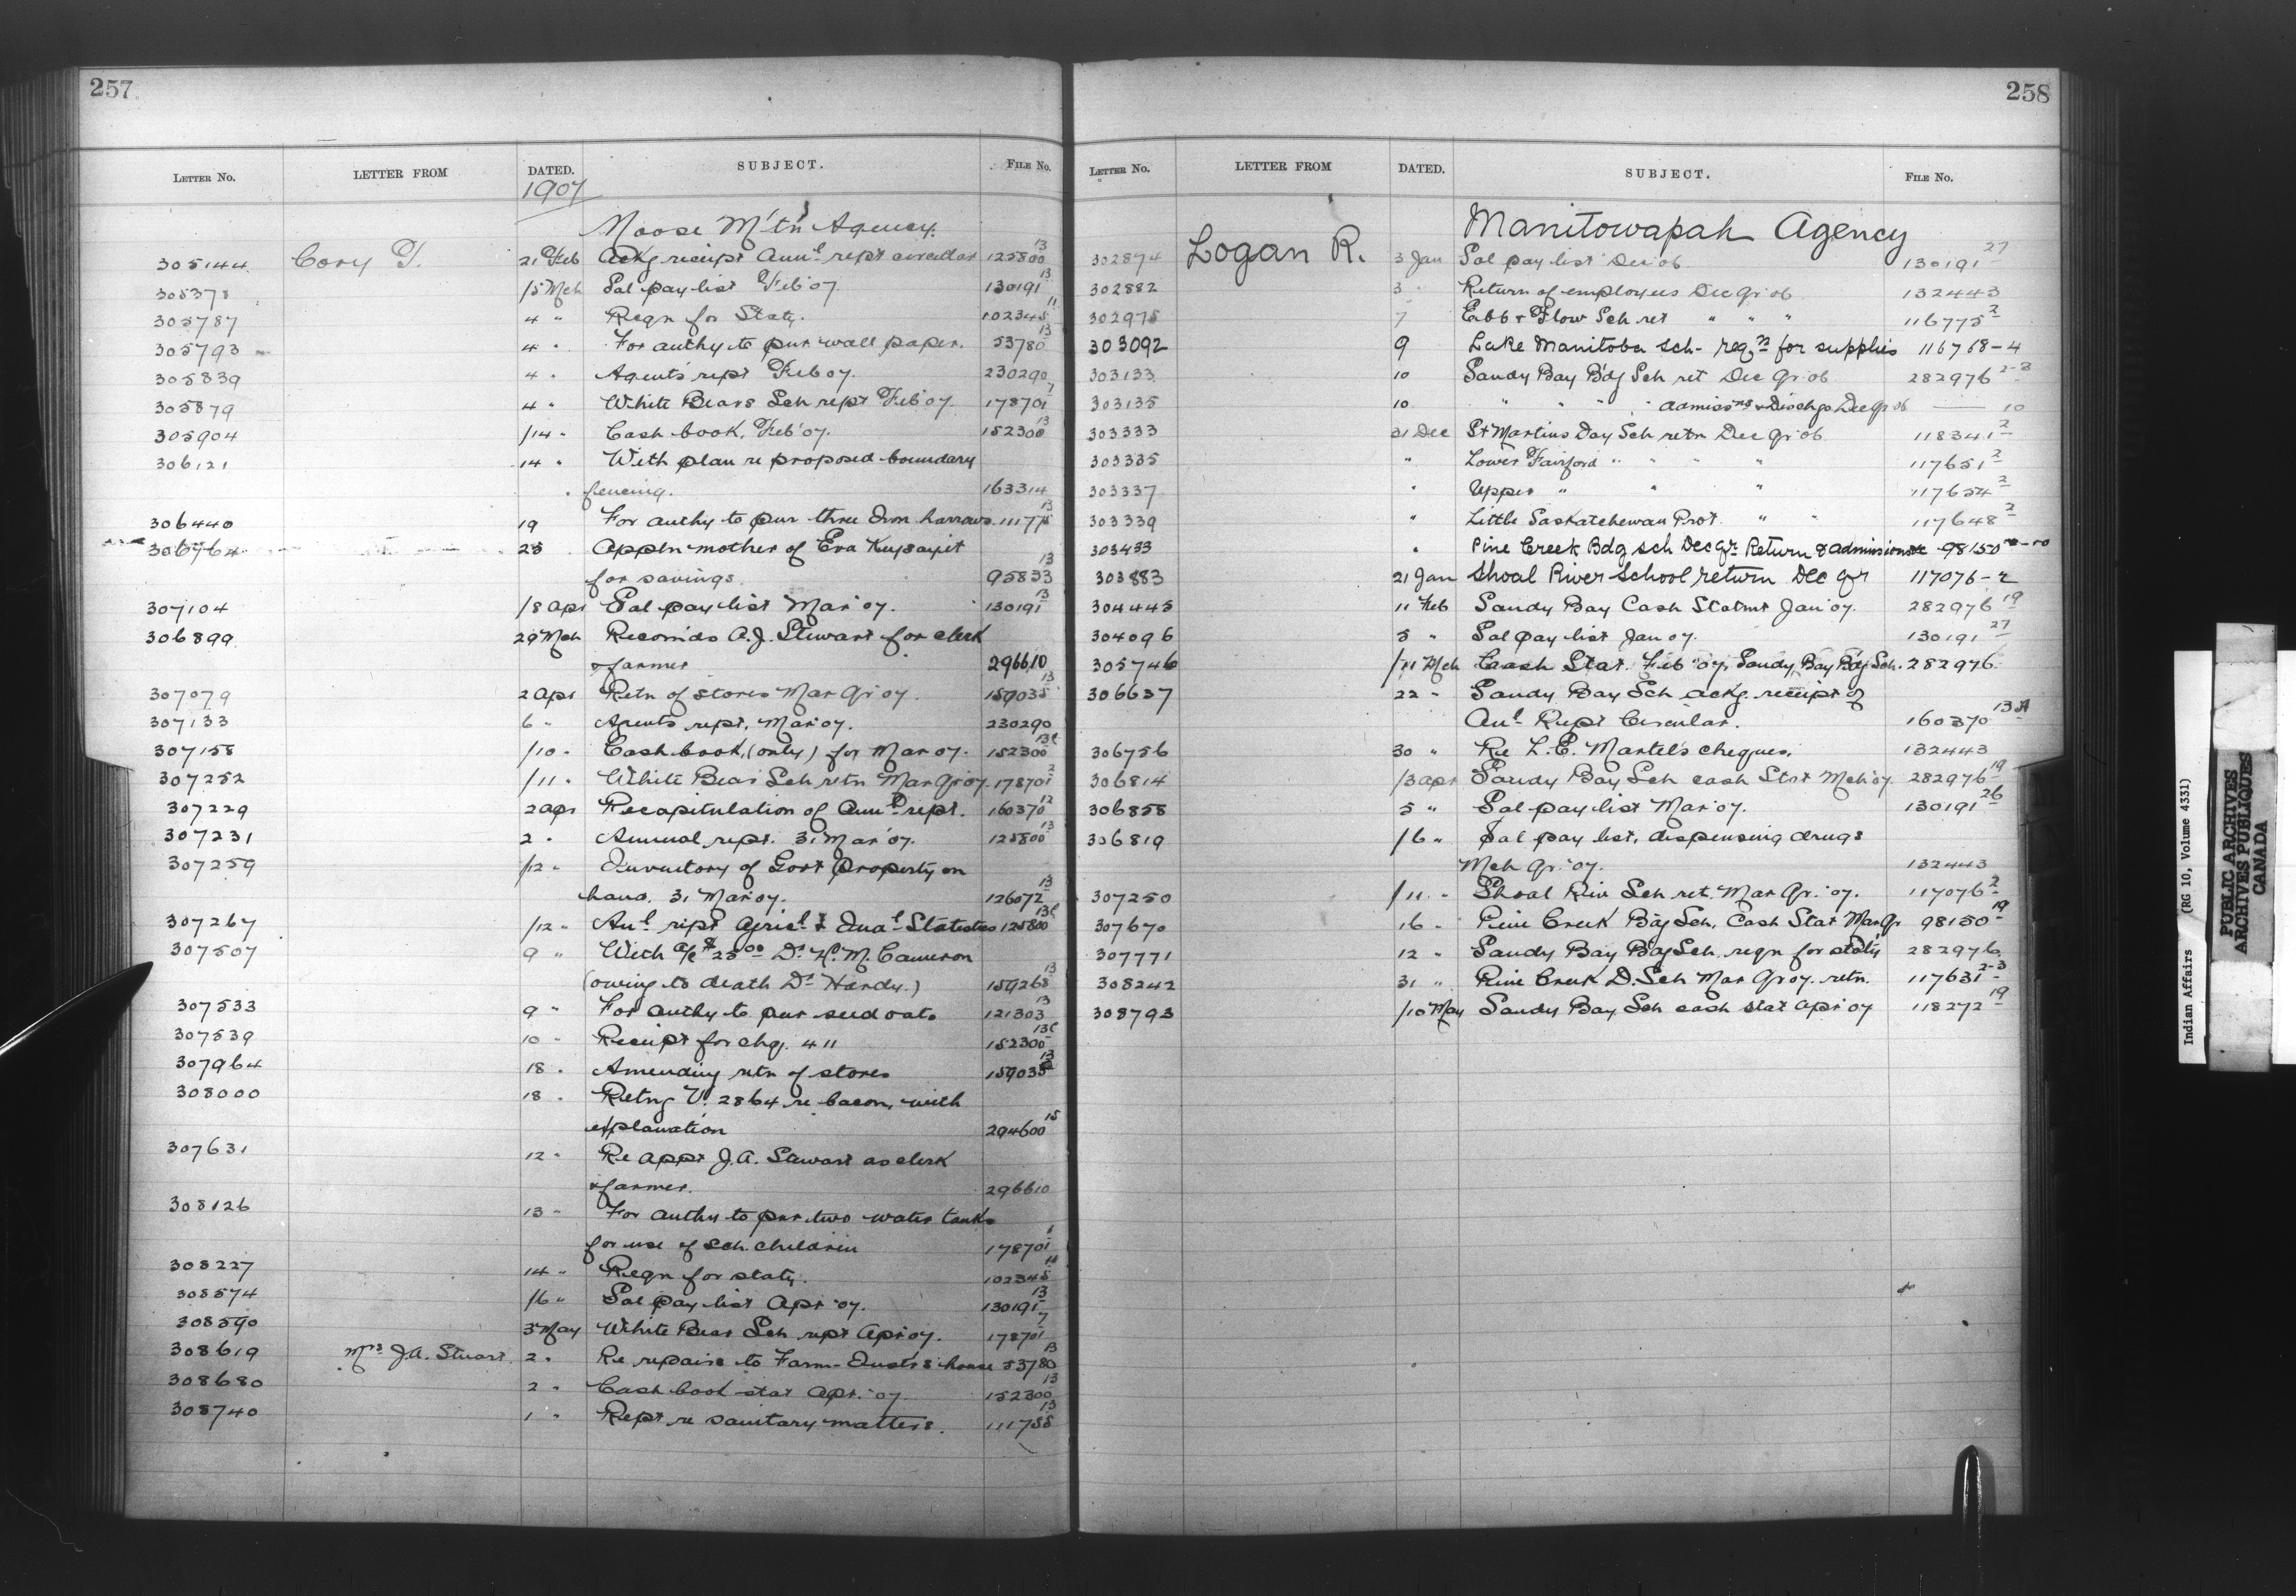 257
LETTER NO. LETTER FROM DATED. SUBJECT. FILE NO.
1907
Moose M't'n Agency.
305144 Cory T. 21 Feb Ackg receipt Annl rept circular 125800 13
305378 /5 Mch Sal pay list Feb'07 130191 13
305787 4 " Reqn for Staty. 102345 11
305793 4 " For authy to pur wall paper. 53780 13
305839 4 " Agents rept Feb 07. 230290
305879 4 " White Bears Sch rept Feb'07 178701 7
305904 /14 " Cash book, Feb'07. 152300 13
306121 14 " With plan re proposed boundary
fencing. 163314
306440 19 For authy to pur three Iron harrows. 111775 13
306764 25 Appln mother of Eva
for savings 95833 13
307104 /8 Apr Sal pay list Mar'07. 130191 13
306899 29 Mch Recomds A.J. Stewart for clerk
& farmer 296610
307079 2 Apr Retn of stores Mar Qr 07. 159035 13
307133 6 " Agents rept. Mar 07. 230290
307158 /10 " Cash book, (only) for Mar 07. 152300 13c
307252 /11 " White Bear Sch retn Mar Qr 07. 178701 2
307229 2 Apr Recapitulation of Annl rept. 160370 12
307231 2 " Annual rept. 31 Mar'07. 125800 13
307259 /12 " Inventory of Govt Property on
hand. 31 Mar 07. 126072 13
307267 /12 " Anl rept Agricl & Indl Statistics 125800 13c
307507 9 " With a/c $25.00 Dr H. M. Cameron
(owing to death Dr Hardy.) 159268 13
307533 9 " For authy to pur seed oats 121303 13
307539 10 " Receipt for chq. 411 152300 13c
307964 18 " Amending retn of stores 159035 13
308000 18 " Retng V. 2864 re bacon, with
explanation 294600 15
307631 12 " Re appt J.A. Stewart as clerk
& farmer. 296610
308126 13 " For authy to pur two water tanks
for use of sch. children 178701 1
308227 14 " Reqn for staty. 102345 11
308574 /6 " Sal pay list Apr '07. 130191 13
308590 3 May White Bear Sch rept Apr 07. 178701 7
308619 Mrs J.A. Stuart 2 " Re repairs to Farm-Instr's house 53780 13
308680 2 " Cash book stat Apr. '07 152300 13
308740 1 " Rept re sanitary matters. 111755 13
258
LETTER NO. LETTER FROM DATED. SUBJECT. FILE NO.
Manitowapah Agency
302874 Logan R. 3 Jan Sal pay list Dec 06 130191 27
302882 3 " Return of employees Dec Qr 06 132443
302975 7 Ebb & Flow Sch ret " " " 116775 2
303092 9 Lake Manitoba Sch- reqn for supplies 116768-4
303133 10 Sandy Bay Bdg Sch ret Dec Qr 06 282976 2-3
303135 10 " " " " admissns & Dischgs Dec Qr 06 —— 10
303333 31 Dec St Martins Day Sch retn Dec Qr 06 118341 2
303335 " Lower Fairford " " " " 117651 2
303337 " Upper " " " 117654 2
303339 " Little Saskatchewan Prot. " " 117648 2
303433 " Pine Creek Bdg sch Dec Qr. Return & admissions &c 98150
303883 21 Jan Shoal River School return Dec Qr 117076-2
304445 11 Feb Sandy Bay Cash Statmt Jan'07. 282976 19
304096 5 " Sal pay list Jan 07. 130191 27
305746 /11 Mch Cash Stat. Feb '07, Sandy Bay Bdg Sch. 282976
306637 22 " Sandy Bay Sch ackg. receipt of
Anl Rept Circular. 160370 13A
306756 30 " Re L.E. Martel's cheques. 132443
306814 /3 Apr Sandy Bay Sch cash Stat Mch'07. 282976 19
306858 5 " Sal pay list Mar'07. 130191 26
306819 /6 " Sal pay list, dispensing drugs
Mch Qr. '07. 132443
307250 /11 " Shoal Riv Sch ret. Mar Qr. '07. 117076 2
307670 16 " Pine Creek Bdg Sch. Cash Stat Mar Qr 98150 19
307771 12 " Sandy Bay Bdg Sch. reqn for staty 282976
308242 31 " Pine Creek D. Sch Mar Qr 07. retn. 117631 2-3
308793 /10 May Sandy Bay Sch cash stat Apr'07 118272 19
Indian Affairs (RG 10, Volume 4331)
PUBLIC ARCHIVES
ARCHIVES PUBLIQUES
CANADA